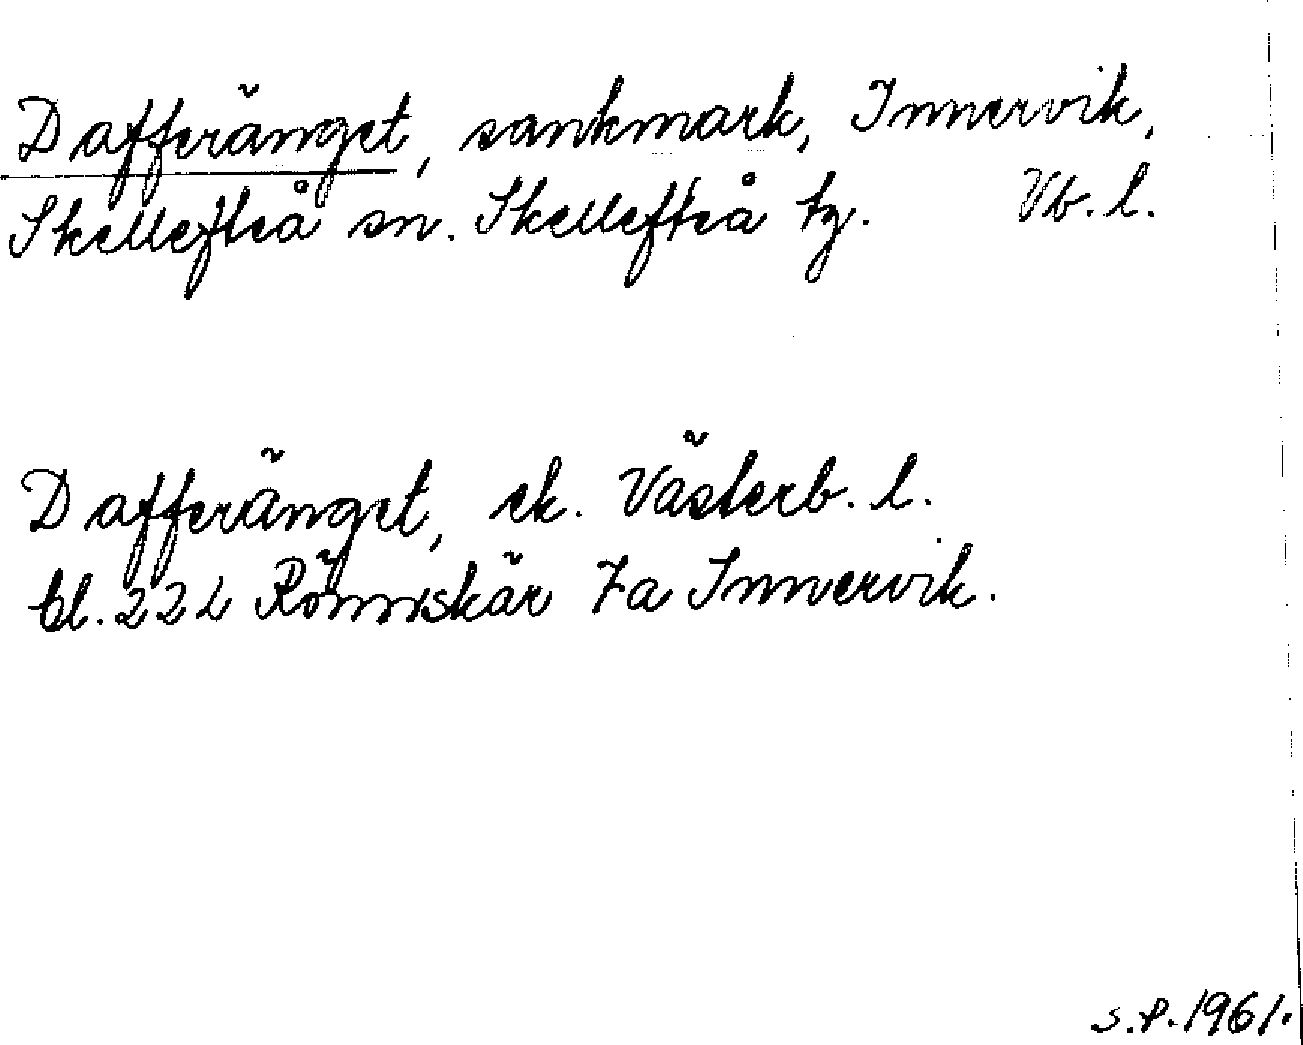 Dafferänget, sankmark, Innervik,
Skellefteå sn. Skellefteå tg. Vb. l.
Dafferänget, ek. Västerb. l.
bl. 22 L Rönnskär 7a Innervik.
S.P. 1961.